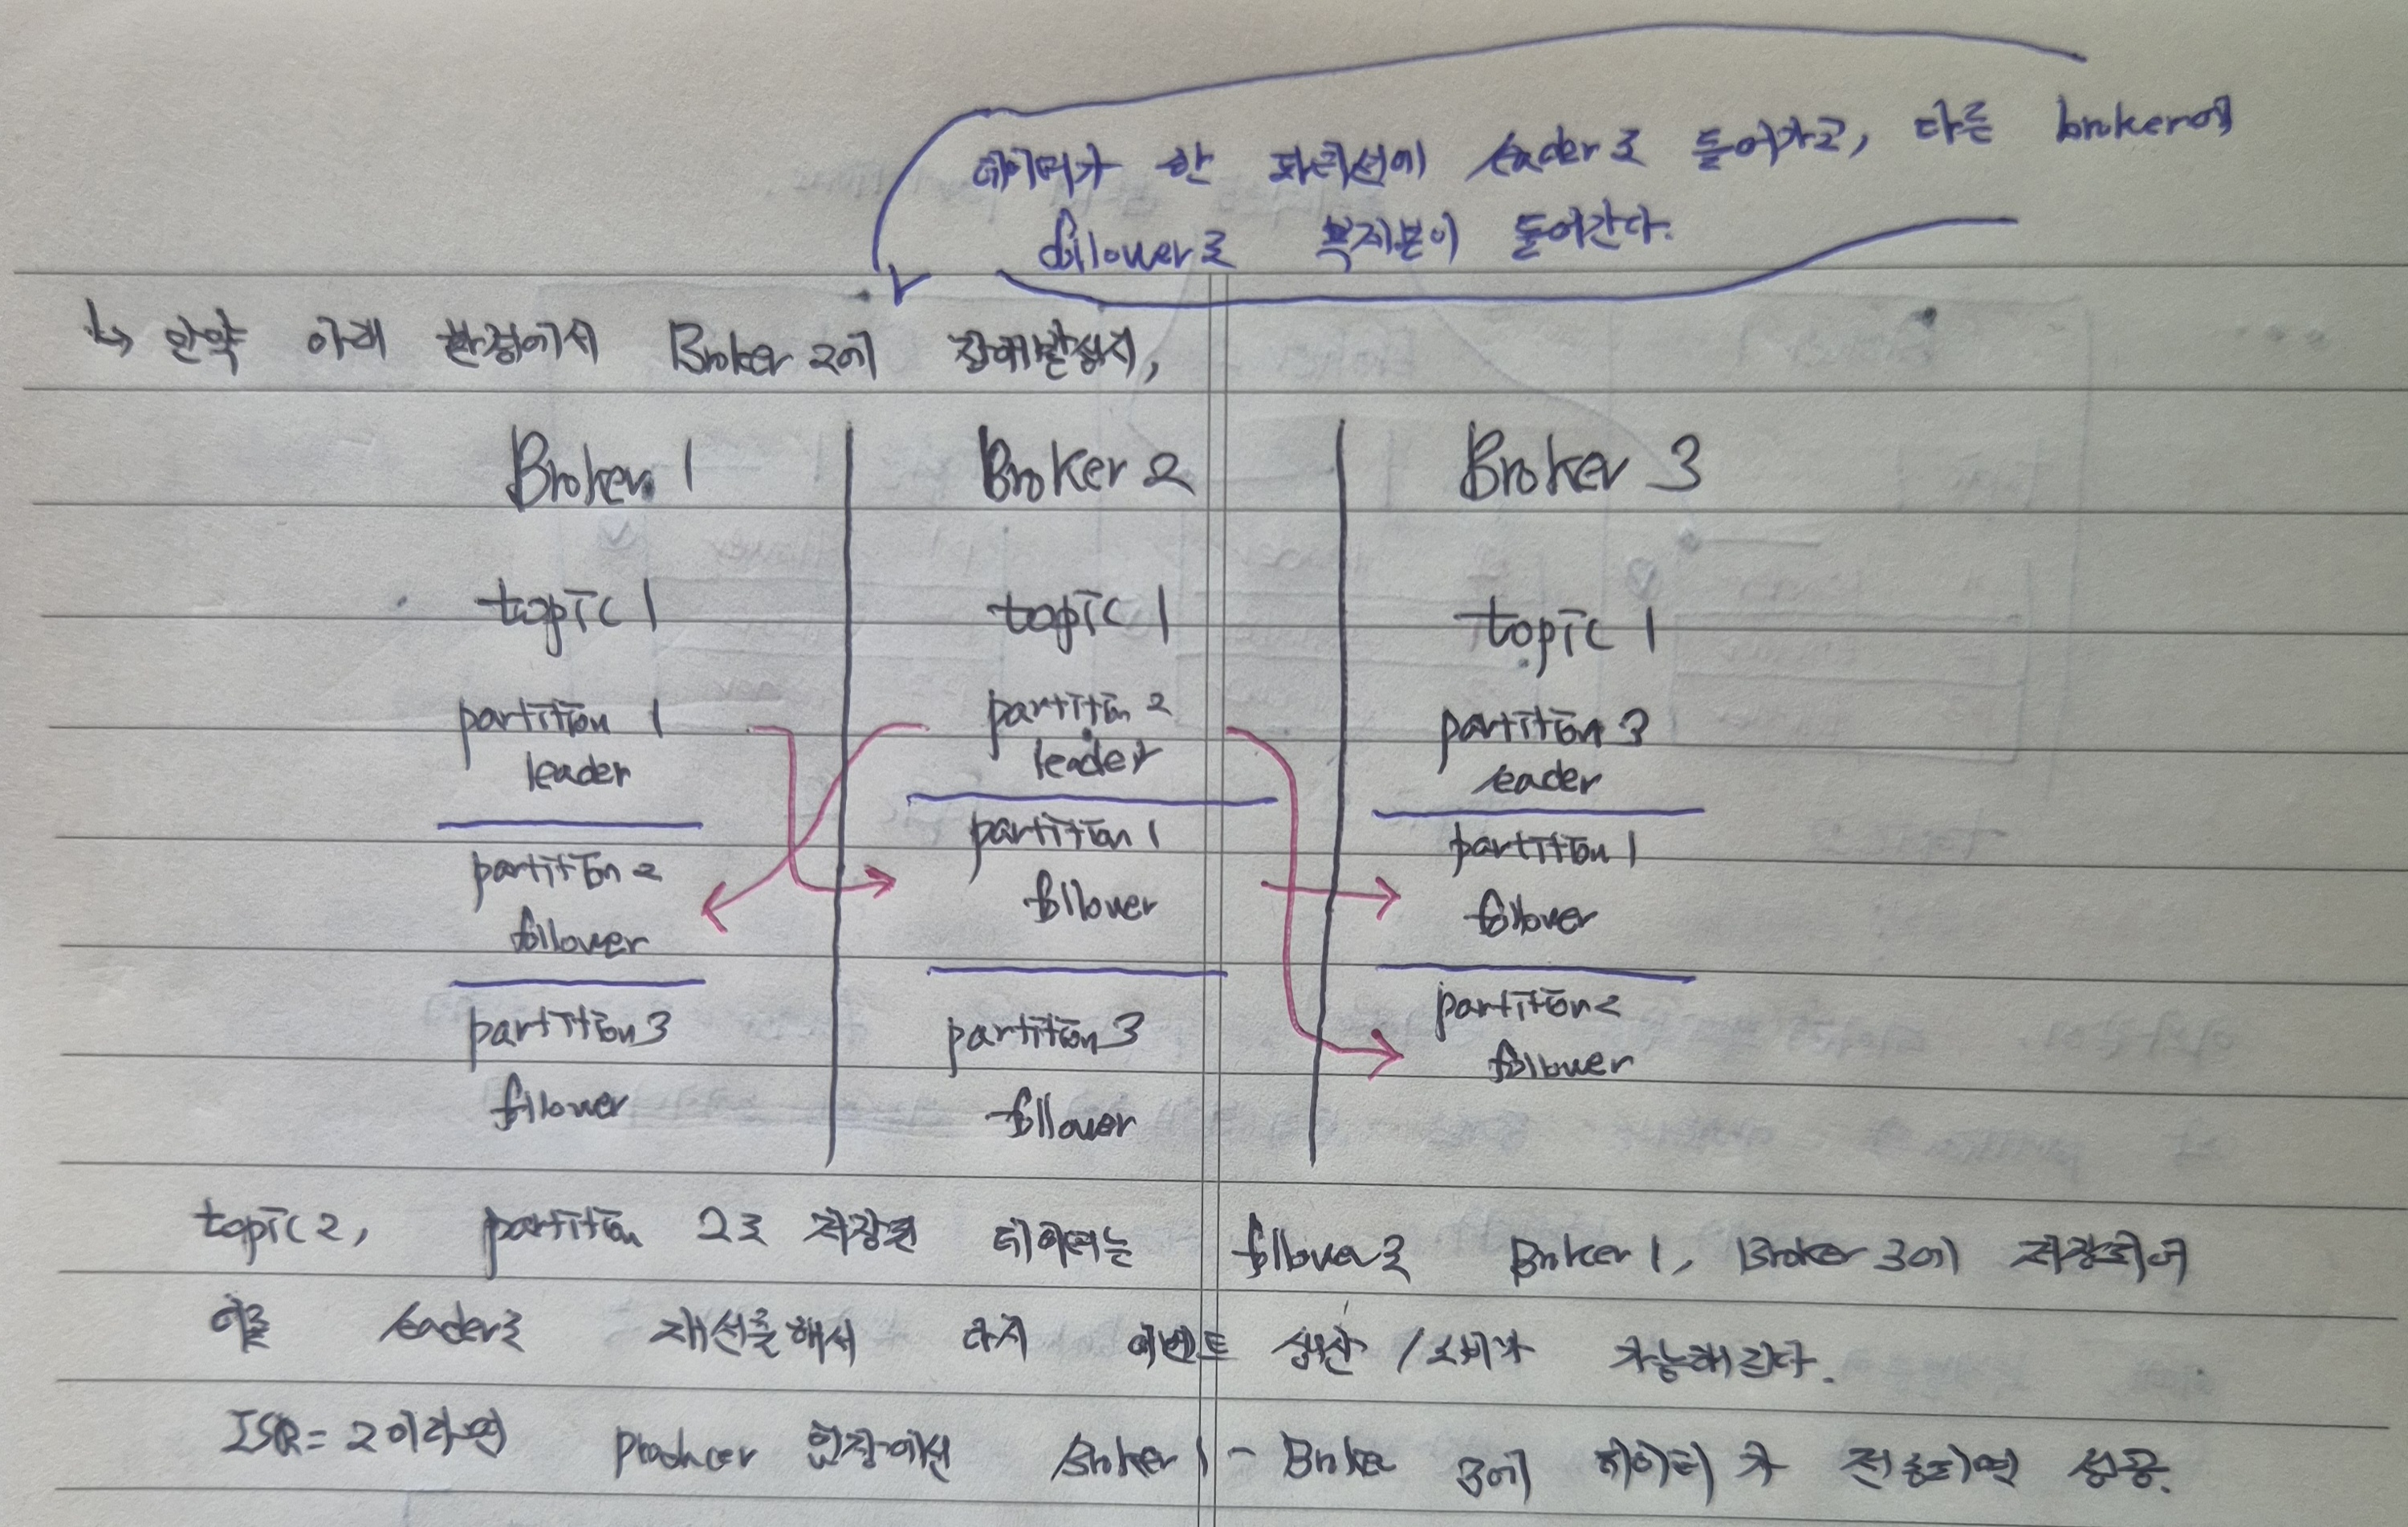 데이터가 한 파티션에 leader로 들어가고, 다른 broker에
follower로 복제본이 들어간다.
↳ 만약 아래 환경에서 Broker 2에 장애발생시,
Broker 1
topic 1
partition 1
leader
partition 2
follower
partition 3
follower
Broker 2
topic 1
partition 2
leader
partition 1
follower
partition 3
follower
Broker 3
topic 1
partition 3
leader
partition 1
follower
partition 2
follower
topic 2, partition 2로 저장된 데이터는 follower로 Broker 1, Broker 3에 저장되어
이를 leader로 재선출해서 다시 이벤트 생산 / 소비가 가능해진다.
ISR = 2이라면 Producer 입장에선 Broker 1 - Broker 3에 데이터가 전송되면 성공.